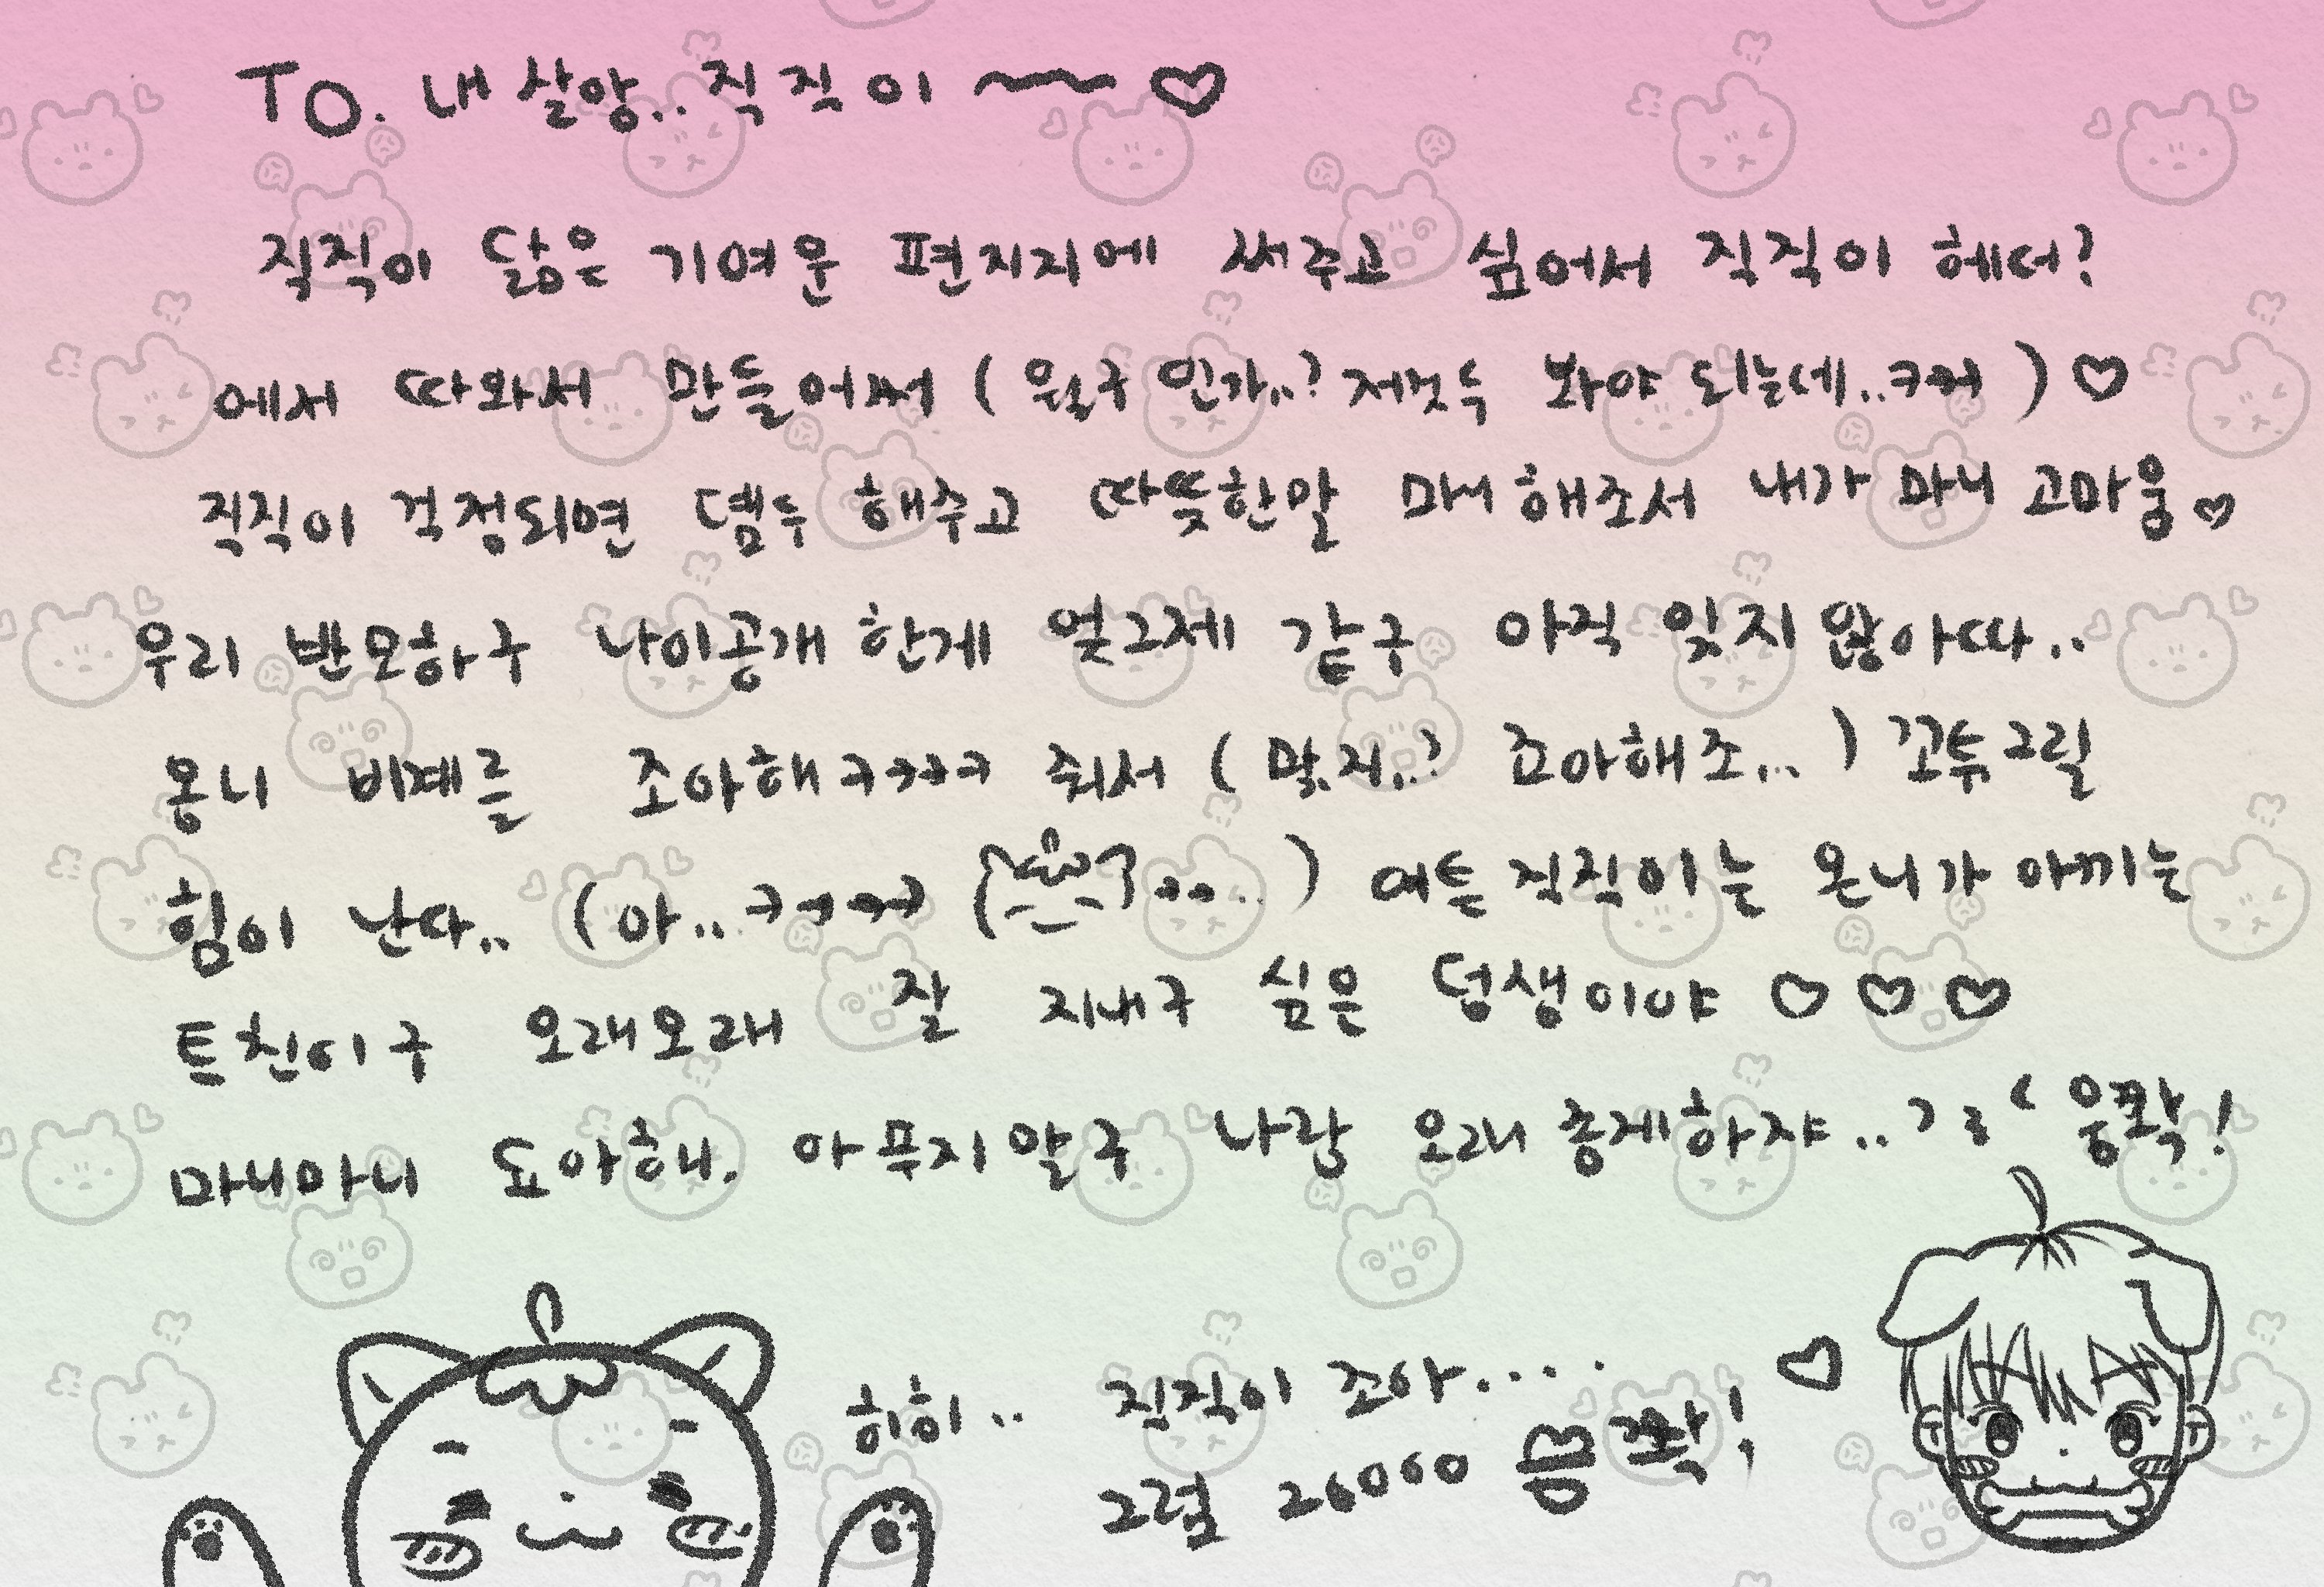 TO. 내 살앙.. 직직이 ~~ ♡
직직이 닮은 기여운 편지지에 써주고 싶어서 직직이 헤더?
에서 따와서 만들어써 ( 원구 인가..? 저것두 봐야 되는데..ㅋㅋㅋ ) ♡
직직이 걱정되면 뎀두 해주고 따뜻한말 마니 해조서 내가 마니 고마웅 ♡
우리 반모하구 나이공개 한게 엊그제 같구 아직 잊지 않아따..
옹니 비계를 조아해ㅋㅋㅋㅋ 줘서 ( 맞지..? 죠아해조... ) 꼬뚜그릴
힘이 난다.. ( 아..ㅋㅋㅋㅋ .. ) 여튼 직직이는 온니가 아끼는
트친이구 오래오래 잘 지내구 싶은 덩생이야 ♡ ♡ ♡
마니마니 됴아해. 아푸지 말구 나랑 오래 종게하쟈.. ㄱㄹㄴ 웅쫙!
히히.. 직직이 조아....
그럼 26000 쫙!